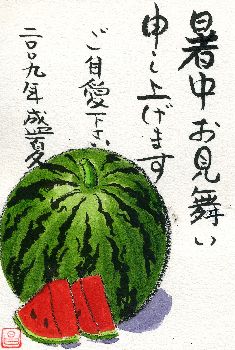 暑中お見舞い
申し上げます
ご自愛下さい
二〇〇九年盛夏